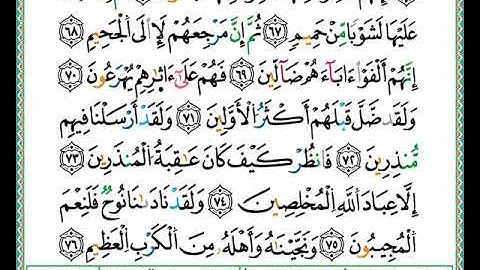 عَلَيْهَا لَشَوْبًا مِّنْ حَمِيمٍ ٦٧ ثُمَّ إِنَّ مَرْجِعَهُمْ لَإِلَى الْجَحِيمِ ٦٨
إِنَّهُمْ أَلْفَوْا ءَابَآءَهُمْ ضَآلِّينَ ٦٩ فَهُمْ عَلَىٰٓ ءَاثَٰرِهِمْ يُهْرَعُونَ ٧٠
وَلَقَدْ ضَلَّ قَبْلَهُمْ أَكْثَرُ الْأَوَّلِينَ ٧١ وَلَقَدْ أَرْسَلْنَا فِيهِم
مُّنذِرِينَ ٧٢ فَانظُرْ كَيْفَ كَانَ عَٰقِبَةُ الْمُنذَرِينَ ٧٣
إِلَّا عِبَادَ اللَّهِ الْمُخْلَصِينَ ٧٤ وَلَقَدْ نَادَىٰنَا نُوحٌ فَلَنِعْمَ
الْمُجِيبُونَ ٧٥ وَنَجَّيْنَٰهُ وَأَهْلَهُ مِنَ الْكَرْبِ الْعَظِيمِ ٧٦